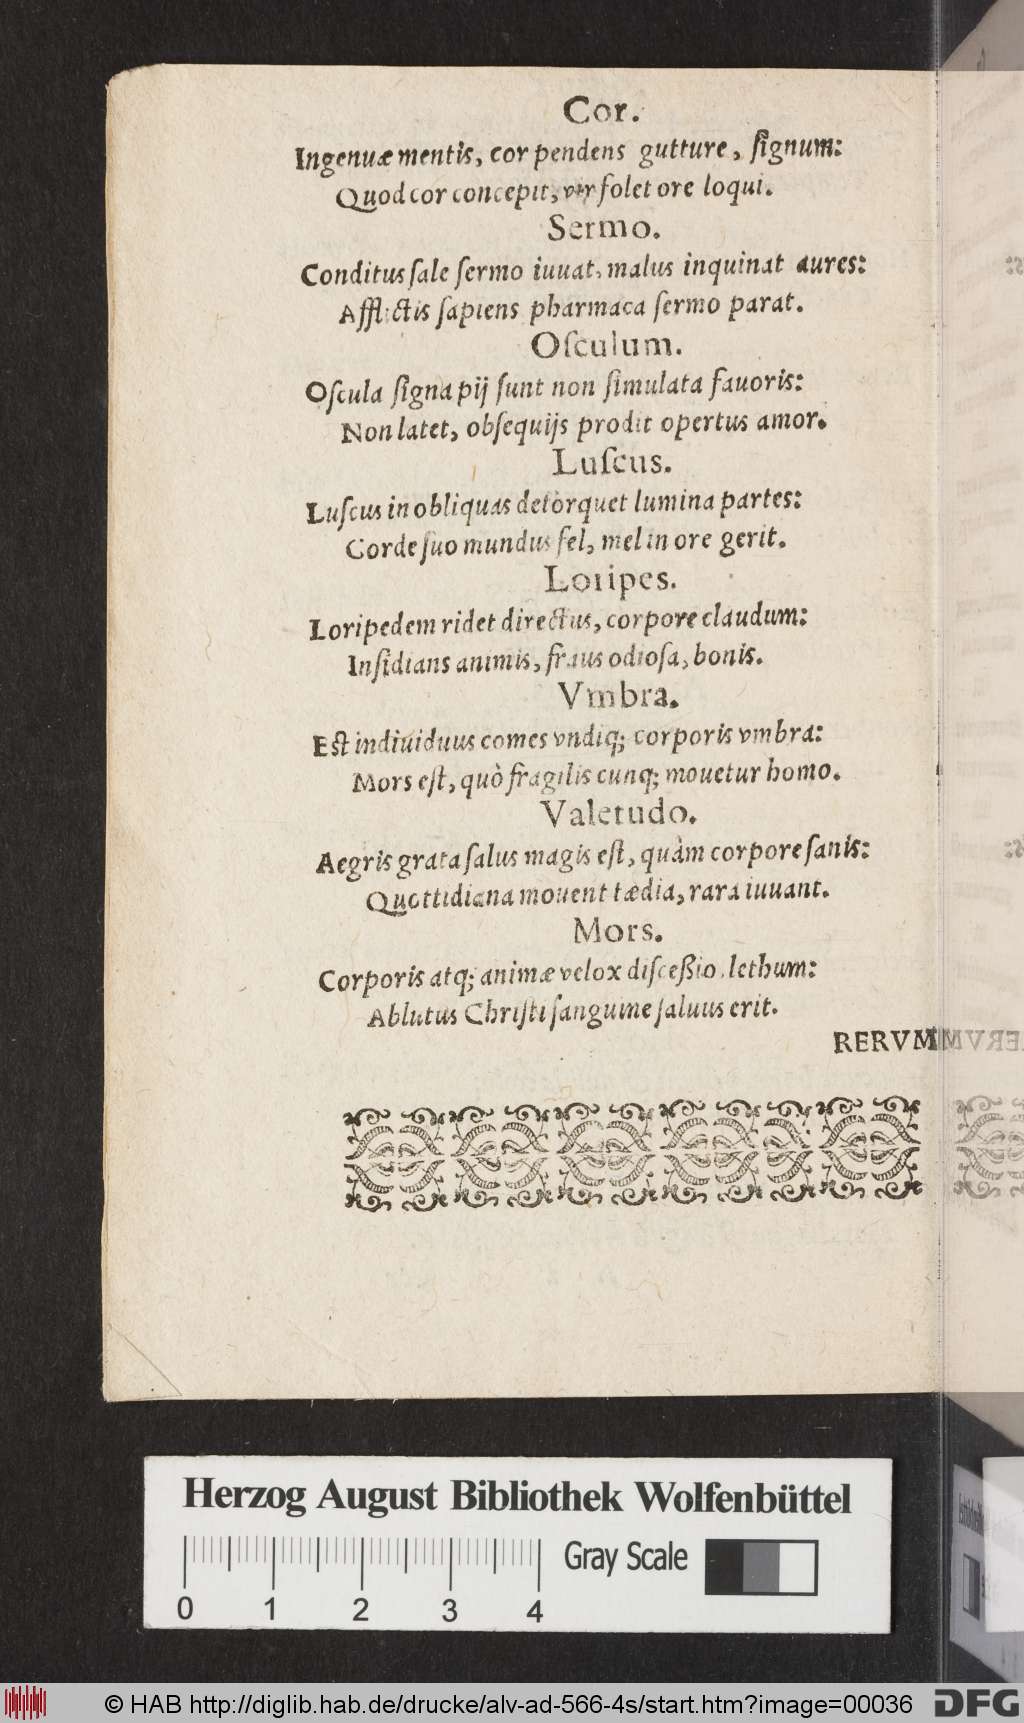 Cor.
Ingenuæ mentis, cor pendens gutture, ſignum:
Quod cor concepit, vir ſolet ore loqui.
Sermo.
Conditus ſale ſermo iuuat, malus inquinat aures:
Afflictis ſapiens pharmaca ſermo parat.
Oſculum.
Oſcula ſigna pij ſunt non ſimulata fauoris:
Non latet, obſequijs prodit opertus amor.
Luſcus.
Luſcus in obliquas detorquet lumina partes:
Corde ſuo mundus fel, mel in ore gerit.
Loripes.
Loripedem ridet directus, corpore claudum:
Inſidians animis, fraus odioſa, bonis.
Vmbra.
Eſt indiuiduus comes vndiq; corporis vmbra:
Mors eſt, quò fragilis cunq; mouetur homo.
Valetudo.
Aegris grata ſalus magis eſt, quàm corpore ſanis:
Quottidiana mouent tædia, rara iuuant.
Mors.
Corporis atq; animæ velox diſceßio, lethum:
Ablutus Chriſti ſanguine ſaluus erit.
RERVM
Herzog August Bibliothek Wolfenbüttel
Gray Scale
0 1 2 3 4
© HAB http://diglib.hab.de/drucke/alv-ad-566-4s/start.htm?image=00036
DFG